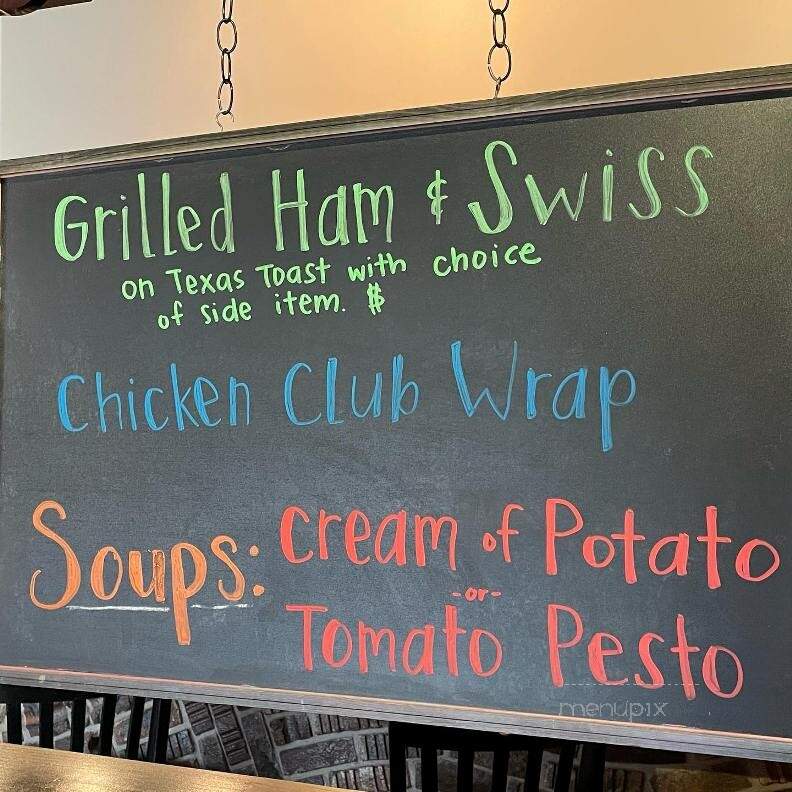 Grilled Ham & Swiss
on Texas Toast with choice
of side item. $
Chicken Club Wrap
Soups: Cream of Potato
-or-
Tomato Pesto
menupix